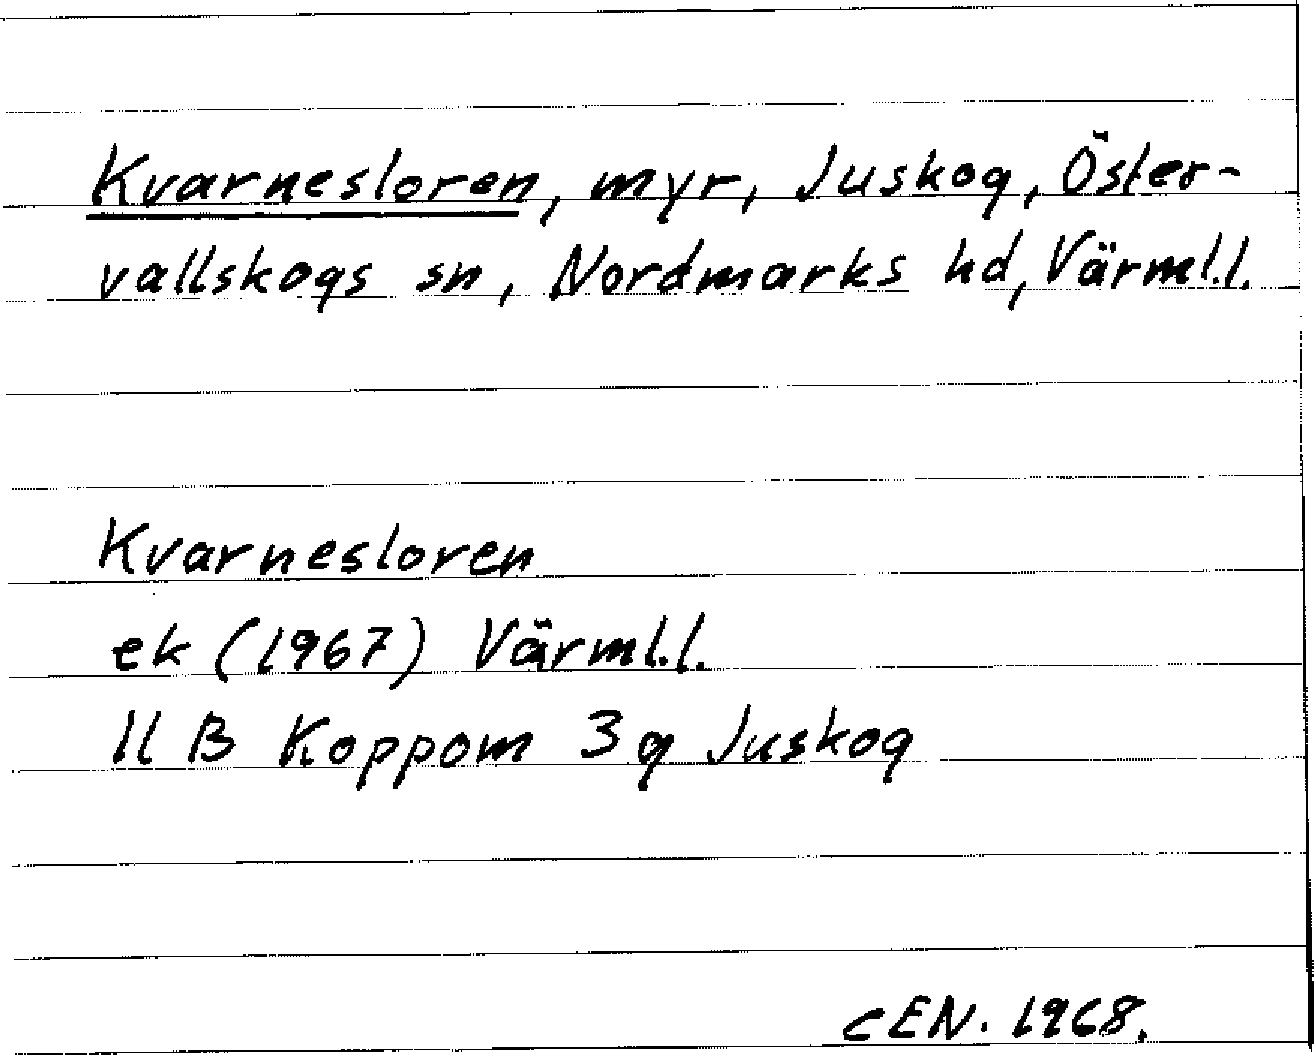 Kvarnesloren, myr, Juskog, Öster-
vallskogs sn, Nordmarks hd, Värml.l.
Kvarnesloren
ek (1967) Värml.l.
11 B Koppom 3 g Juskog
CEN. 1968.